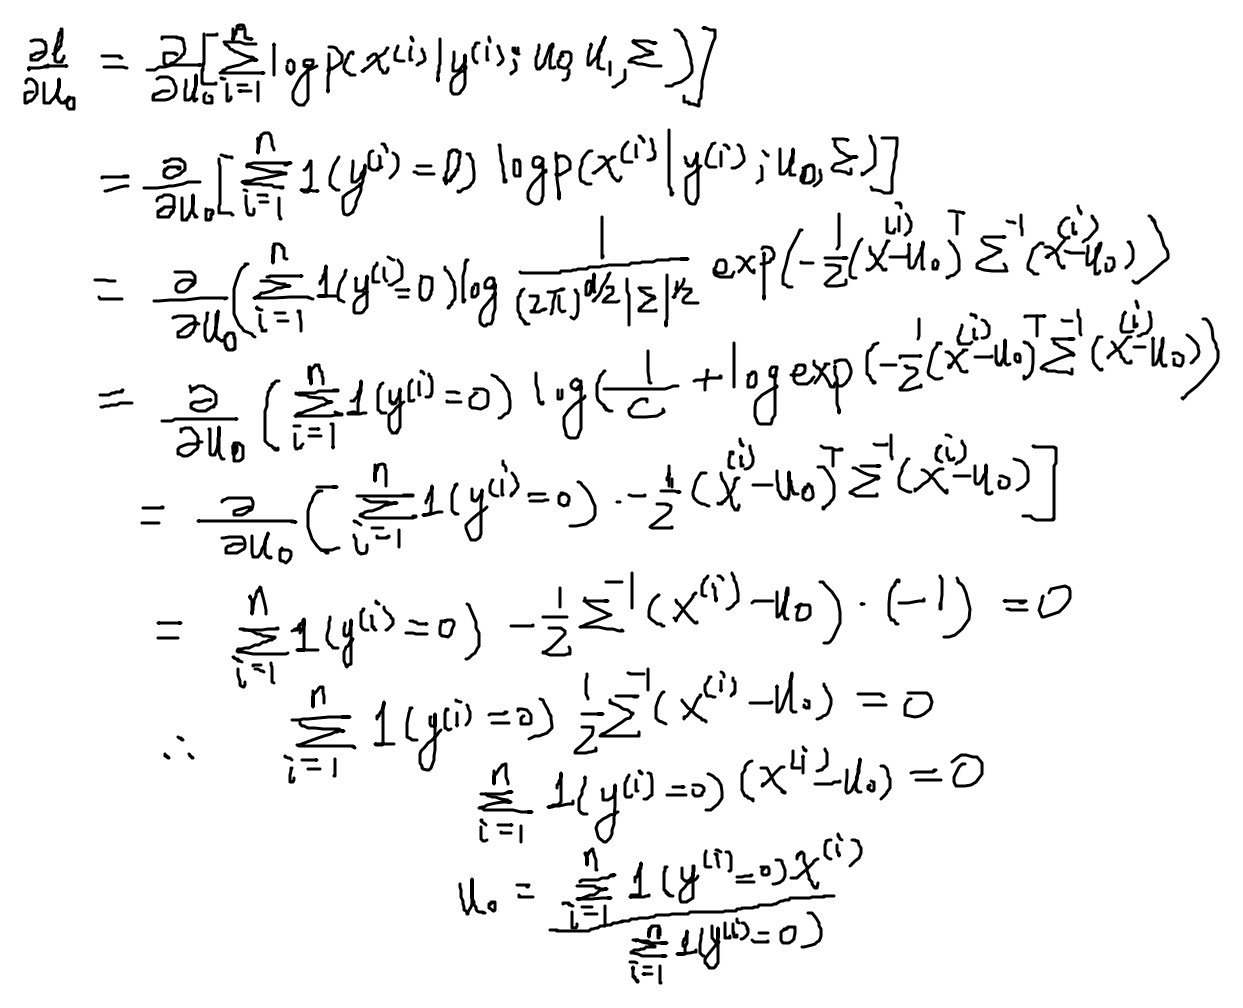 ∂ℓ/∂u₀ = ∂/∂u₀ [∑ⁿᵢ₌₁ log p(x⁽ⁱ⁾|y⁽ⁱ⁾; u₀, u₁, Σ)]
= ∂/∂u₀ [∑ⁿᵢ₌₁ 1(y⁽ⁱ⁾=0) log p(x⁽ⁱ⁾|y⁽ⁱ⁾; u₀, Σ)]
= ∂/∂u₀ (∑ⁿᵢ₌₁ 1(y⁽ⁱ⁾=0) log 1/((2π)^{d/2}|Σ|^{1/2}) exp(-1/2(x⁽ⁱ⁾-u₀)ᵀ Σ⁻¹ (x⁽ⁱ⁾-u₀))
= ∂/∂u₀ (∑ⁿᵢ₌₁ 1(y⁽ⁱ⁾=0) log(1/c + log exp(-1/2(x⁽ⁱ⁾-u₀)ᵀ Σ⁻¹ (x⁽ⁱ⁾-u₀))
= ∂/∂u₀ [∑ⁿᵢ₌₁ 1(y⁽ⁱ⁾=0) · -1/2 (x⁽ⁱ⁾-u₀)ᵀ Σ⁻¹ (x⁽ⁱ⁾-u₀)]
= ∑ⁿᵢ₌₁ 1(y⁽ⁱ⁾=0) -1/2 Σ⁻¹ (x⁽ⁱ⁾-u₀) · (-1) = 0
∴ ∑ⁿᵢ₌₁ 1(y⁽ⁱ⁾=0) 1/2 Σ⁻¹ (x⁽ⁱ⁾-u₀) = 0
∑ⁿᵢ₌₁ 1(y⁽ⁱ⁾=0) (x⁽ⁱ⁾-u₀) = 0
u₀ = ∑ⁿᵢ₌₁ 1(y⁽ⁱ⁾=0)x⁽ⁱ⁾ / ∑ⁿᵢ₌₁ 1(y⁽ⁱ⁾=0)